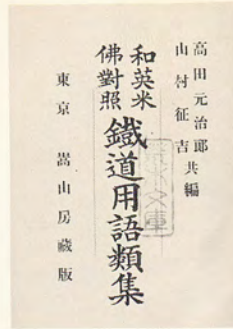 高田元治郎
山村征吉
共編
和英米
佛對照
鐵道用語類集
東京 嵩山房藏版